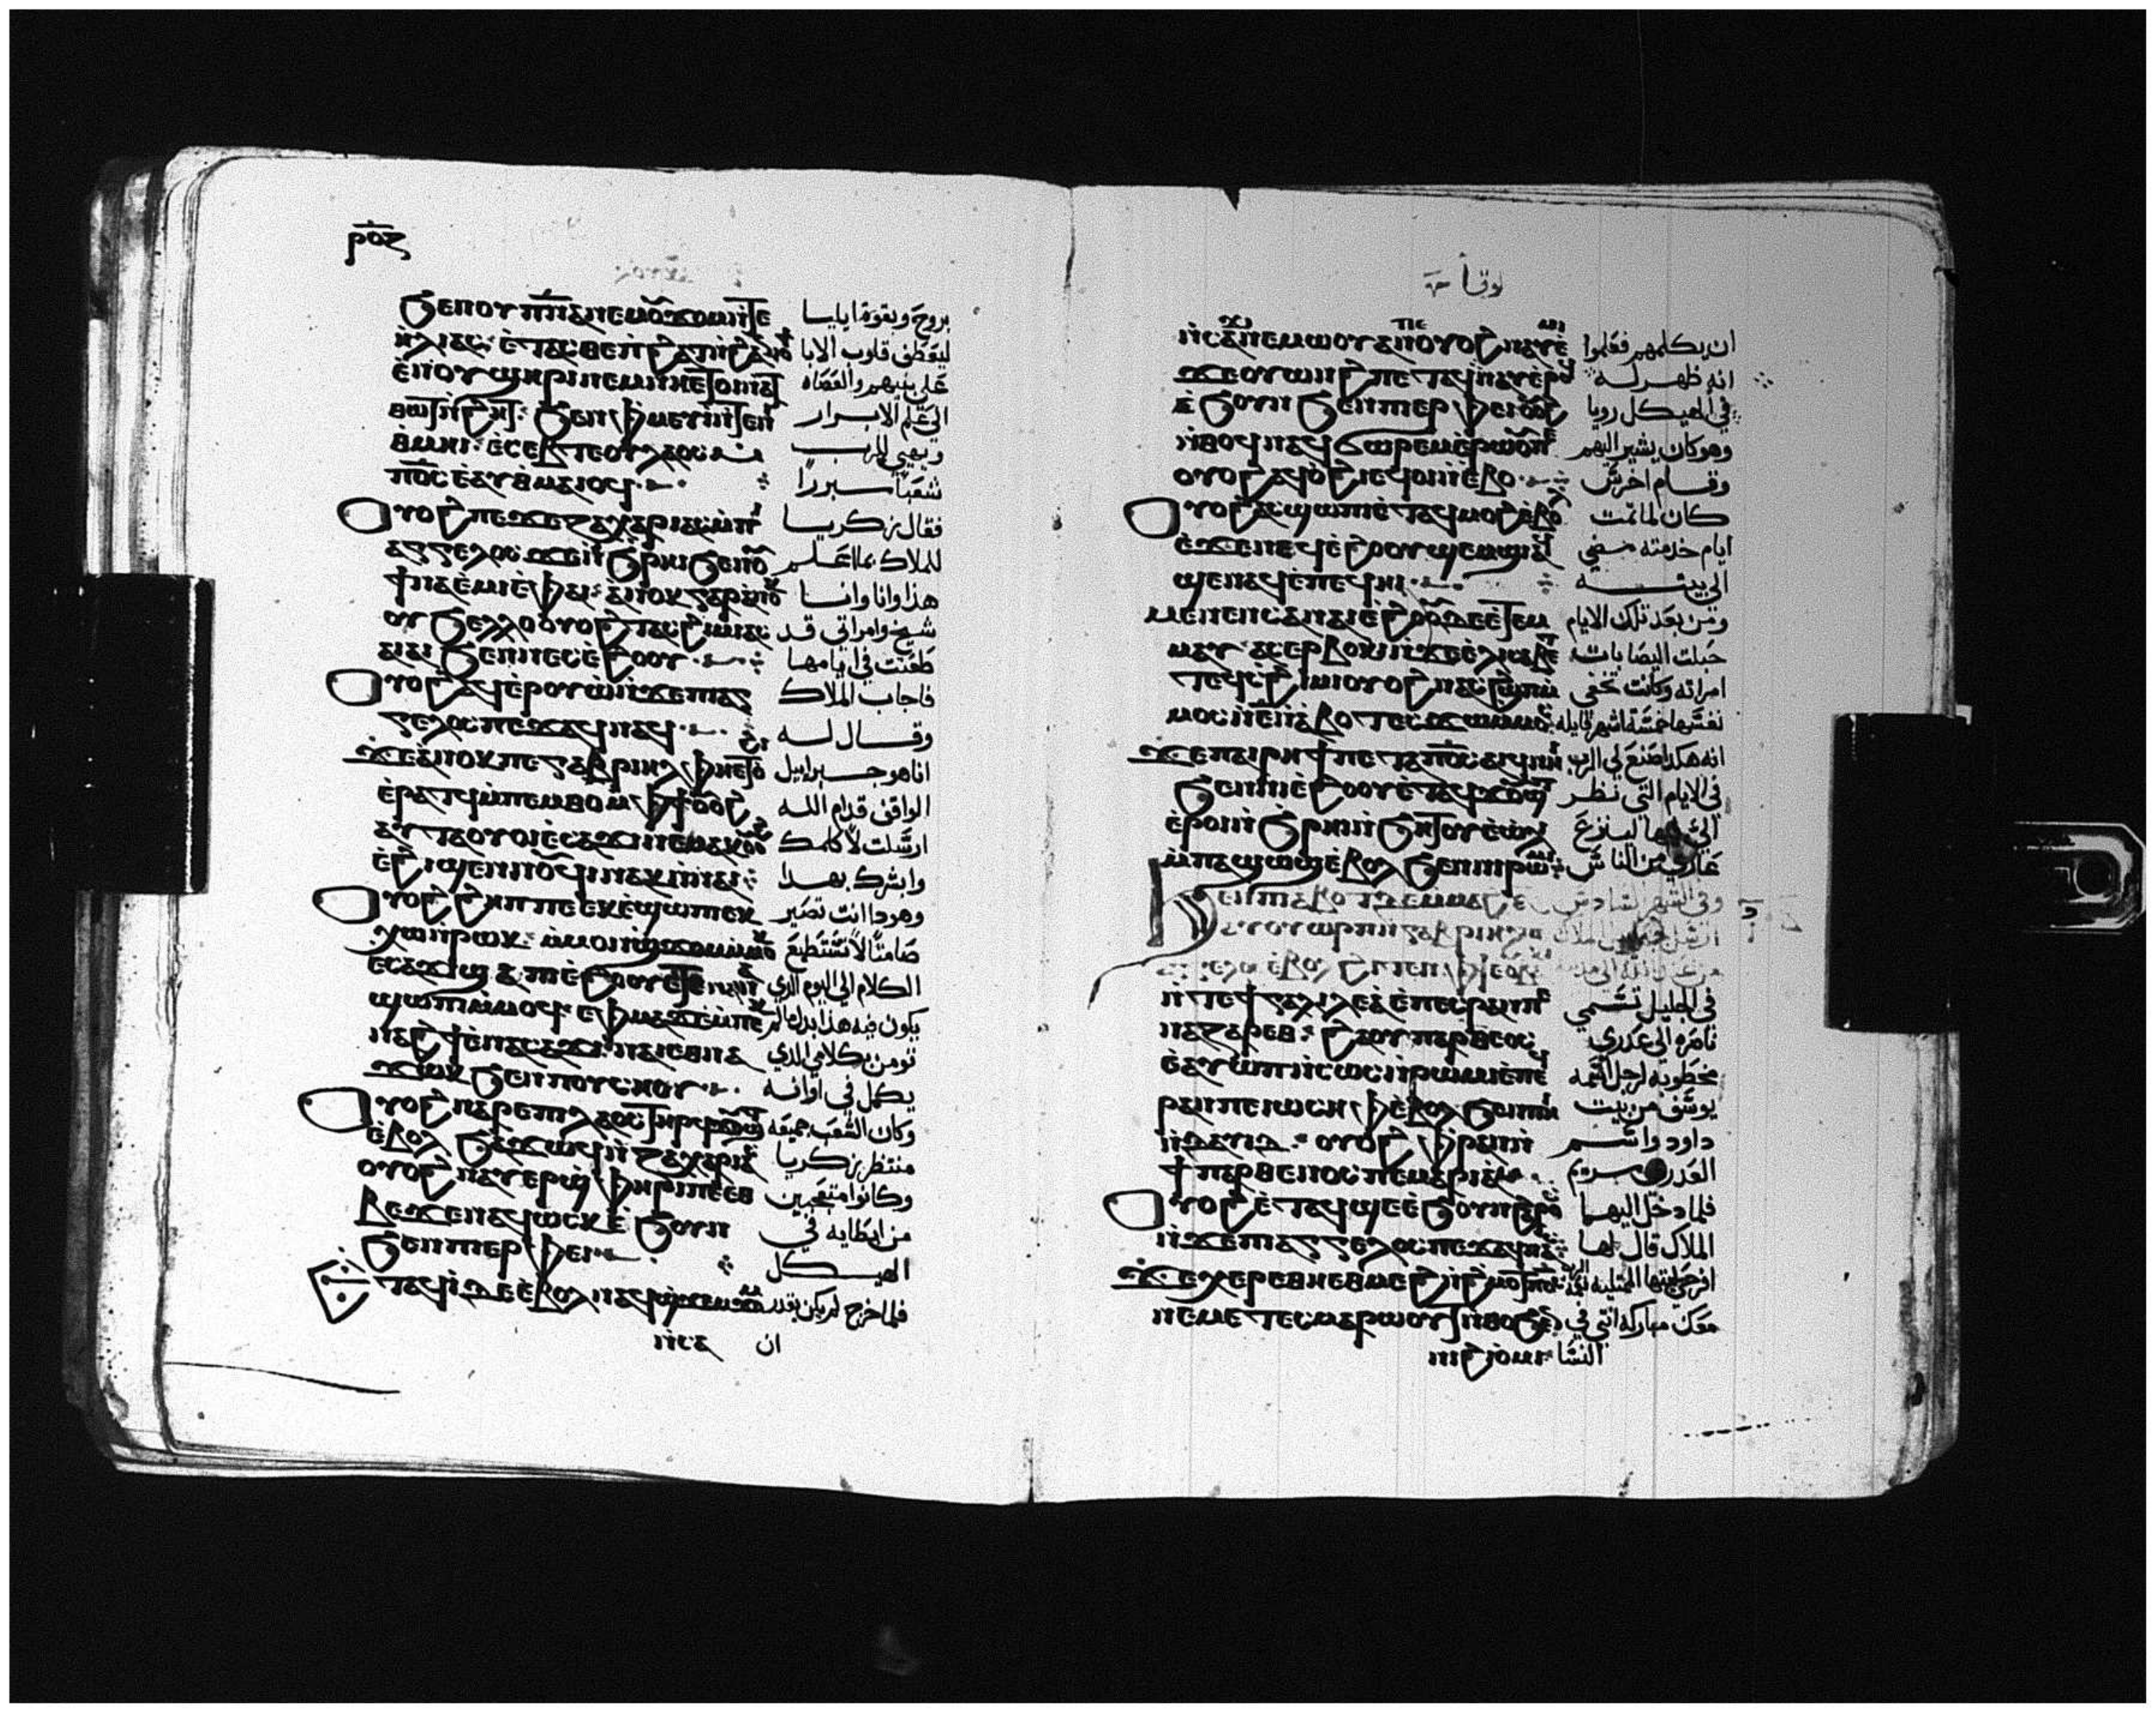 ⲣⲟⲍ
ϧⲉⲛⲟⲩⲡⲛⲁ ⲛⲉⲙⲟⲩϫⲟⲙ ⲛⲧⲉ بروح وبقوة ايليا
ⲏⲗⲓⲁⲥ ⲉⲧⲁⲥⲑⲉ ⲛϩⲁⲛϩⲏⲧ ⲛⲓⲟϯ ليعطف قلوب الابا
ⲉⲛⲟⲩϣⲏⲣⲓ ⲛⲉⲙ ⲛⲏⲉⲧⲟⲓ ⲛⲁⲧ على بنيهم والعصاه
ⲑⲱⲧ ⲛϩⲏⲧ ϧⲉⲛ ⲫⲙⲉⲩⲓ ⲛⲧⲉ ⲛⲓ الى علم الابرار
ⲑⲙⲏⲓ ⲉⲥⲉⲃⲧⲉ ⲟⲩⲗⲁⲟⲥ ويهيى للرب
ⲡⲟⲥ ⲉⲁⲩⲑⲁⲙⲓⲟϥ شعبا مبررا
ⲟⲩⲟϩ ⲡⲉϫⲉ ⲍⲁⲭⲁⲣⲓⲁⲥ ⲙⲡⲓ فقال زكريا
ⲁⲅⲅⲉⲗⲟⲥ ϫⲉ ⲛϧⲣⲏⲓ ϧⲉⲛ ⲟⲩ للملاك بما اعلم
ϯⲛⲁⲉⲙⲓ ⲉⲫⲁⲓ ⲁⲛⲟⲕ ⲅⲁⲣ هذا وانا وانا
ⲟⲩϧⲉⲗⲗⲟ ⲟⲩⲟϩ ⲧⲁⲥϩⲓⲙⲓ ⲁⲥ شيخ وامراتي قد
ⲁⲓⲁⲓ ϧⲉⲛⲛⲉⲥⲉϩⲟⲟⲩ طعنت في ايامها
ⲟⲩⲟϩ ⲁϥⲉⲣⲟⲩⲱ ⲛϫⲉ ⲡⲓⲁⲅ فاجاب الملاك
ⲅⲉⲗⲟⲥ ⲡⲉϫⲁϥ ⲛⲁϥ وقال له
ϫⲉ ⲁⲛⲟⲕ ⲡⲉ ⲅⲁⲃⲣⲓⲏⲗ ⲫⲏⲉⲧⲟ انا هو جبراييل
ⲉⲣⲁⲧϥ ⲙⲡⲉⲙⲑⲟ ⲙⲫϯ ⲟⲩⲟϩ الواقف قدام الله
ⲁⲩⲧⲁⲟⲩⲟⲓ ⲉⲥⲁϫⲓ ⲛⲉⲙⲁⲕ ارسلت لاكلمك
ⲉϩⲓϣⲉⲛⲛⲟⲩϥⲓ ⲛⲁⲕ ⲛⲛⲁⲓ وابشرك بهدا
ⲟⲩⲟϩ ϩⲏⲡⲡⲉ ⲉⲕⲉϣⲱⲡⲓ ⲉⲕ وهودا انت تصير
ⲭⲱ ⲛⲣⲱⲕ ⲙⲙⲟⲛ ϣϫⲟⲙ ⲙⲙⲟⲕ صامتا لا تستطيع
ⲉⲥⲁϫⲓ ϣⲁ ⲡⲓⲉϩⲟⲟⲩ ⲉⲧⲉ الكلام الى اليوم الدي
ϣⲱⲡⲓ ⲙⲙⲟϥ ⲉⲫⲙⲁ ϫⲉ ⲙⲡⲉⲕ يكون فيه هذا بدل ما لم
ⲛⲁϩϯ ⲉⲛⲁⲥⲁϫⲓ ⲛⲁⲓ ⲉⲑⲛⲁ تومن بكلامي الدي
ϫⲱⲕ ϧⲉⲛⲡⲟⲩⲥⲏⲟⲩ يكمل في اوانه
ⲟⲩⲟϩ ⲛⲁⲣⲉⲡⲓⲗⲁⲟⲥ ⲧⲏⲣϥ وكان الشعب جميعه
ⲉⲃⲟⲗ ϧⲁϫⲱϥ ⲛⲍⲁⲭⲁⲣⲓⲁⲥ منتظر زكريا
ⲟⲩⲟϩ ⲛⲁⲩⲉⲣϣⲫⲏⲣⲓ ⲡⲉ ⲉⲑ وكانوا متعجبين
ⲃⲉ ϫⲉ ⲛⲁϥⲱⲥⲕ ⲉϧⲟⲩⲛ من ابطايه في
ϧⲉⲛⲡⲓⲉⲣⲫⲉⲓ الهيكل
ⲉⲧⲁϥⲓ ⲇⲉ ⲉⲃⲟⲗ ⲛⲁϥϣϫⲉⲙϫⲟⲙ فلما خرج لم يكن يقدر
ⲛⲥⲁ ان
لوقا
ⲛⲥⲁϫⲓ ⲛⲉⲙⲱⲟⲩ ⲁⲛ ⲡⲉ ⲟⲩⲟϩ ⲛⲁⲩⲉⲙⲓ ان يكلمهم فعلموا
ϫⲉ ⲟⲩⲱⲛϩ ⲡⲉⲧⲁϥⲛⲁⲩ ⲉⲣⲟϥ انه ظهر له
ⲉϧⲟⲩⲛ ϧⲉⲛⲡⲓⲉⲣⲫⲉⲓ ⲟⲩⲟϩ في الهيكل رويا
ⲛⲑⲟϥ ⲛⲁϥϭⲱⲣⲉⲙ ⲉⲣⲱⲟⲩ ⲡⲉ وهو كان يشير اليهم
ⲟⲩⲟϩ ⲁϥⲟϩⲓ ⲉϥⲟⲓ ⲛⲉⲃⲟ وقام اخرس
ⲟⲩⲟϩ ⲁⲥϣⲱⲡⲓ ⲉⲧⲁⲩⲙⲟϩ ⲉⲃⲟⲗ كان لما تمت
ⲛϫⲉ ⲛⲉϥⲉϩⲟⲟⲩ ⲛϣⲉⲙϣⲓ ⲁϥ ايام خدمته مضى
ϣⲉⲛⲁϥ ⲉⲡⲉϥⲏⲓ الى بيته
ⲙⲉⲛⲉⲛⲥⲁ ⲛⲁⲓⲉϩⲟⲟⲩ ⲇⲉ ⲉⲧⲉⲙ ومن بعد تلك الايام
ⲙⲁⲩ ⲁⲥⲉⲣⲃⲟⲕⲓ ⲛϫⲉ ⲉⲗⲓⲥⲁⲃⲉⲧ حبلت اليصابات
ⲧⲉϥⲥϩⲓⲙⲓ ⲟⲩⲟϩ ⲛⲁⲥϩⲱⲡ ⲙ امراته وكانت تخفي
ⲙⲟⲥ ⲛⲉ ⲛⲁⲃⲟⲧ ⲉⲥϫⲱ ⲙⲙⲟⲥ نفسها خمسة اشهر قايله
ϫⲉ ⲡⲁⲓⲣⲏϯ ⲡⲉⲧⲁ ⲡⲟⲥ ⲁⲓϥ ⲛⲏⲓ انه هكدا صنع لي الرب
ϧⲉⲛⲛⲓⲉϩⲟⲟⲩ ⲉⲧⲁϥϫⲟⲩϣⲧ في الايام التي نظر
ⲉⲣⲟⲓ ⲛϧⲣⲏⲓ ⲛϧⲏⲧⲟⲩ ⲉⲱⲗⲓ الي فيها لينزع
ⲙⲡⲁϣⲱϣ ⲉⲃⲟⲗ ϧⲉⲛⲛⲓⲣⲱⲙⲓ عاري من الناس
ϧⲉⲛⲡⲓⲁⲃⲟⲧ ⲇⲉ ⲙⲙⲁϩⲋ وفي الشهر السادس
ⲁⲩⲟⲩⲱⲣⲡ ⲛⲅⲁⲃⲣⲓⲏⲗ ارسل جبراييل الملاك
ⲉⲃⲟⲗ ϩⲓⲧⲉⲛ ⲫϯ من عند الله الى مدينه
ⲛⲧⲉ ϯⲅⲁⲗⲓⲗⲉⲁ ⲉⲡⲉⲥⲣⲁⲛ ⲡⲉ في الجليل تسمى
ⲛⲁⲍⲁⲣⲉⲑ ϩⲁ ⲟⲩⲡⲁⲣⲑⲉⲛⲟⲥ ناصره الى عدرى
ⲉⲁⲩⲱⲡ ⲛⲥⲱⲥ ⲛⲣⲱⲙⲓ ⲉⲡⲉϥ مخطوبه لرجل اسمه
ⲣⲁⲛ ⲡⲉ ⲓⲱⲥⲏⲫ ⲉⲃⲟⲗ ϧⲉⲛⲡⲏⲓ يوسف من بيت
ⲛⲇⲁⲩⲓⲇ ⲟⲩⲟϩ ⲫⲣⲁⲛ ⲛ داود واسم
ϯⲡⲁⲣⲑⲉⲛⲟⲥ ⲡⲉ ⲙⲁⲣⲓⲁⲙ العدرى مريم
ⲟⲩⲟϩ ⲉⲧⲁϥϣⲉ ⲉϧⲟⲩⲛ ϩⲁⲣⲟⲥ فلما دخل اليها
ⲛϫⲉ ⲡⲓⲁⲅⲅⲉⲗⲟⲥ ⲡⲉϫⲁϥ ⲛⲁⲥ الملاك قال لها
ϫⲉ ⲭⲉⲣⲉ ⲑⲏⲉⲑⲙⲉϩ ⲛϩⲙⲟⲧ افرحي ايتها الممتليه نعمه الرب
ⲛⲉⲙⲉ ⲧⲉⲥⲙⲁⲣⲱⲟⲩⲧ ⲛⲑⲟ ϧⲉⲛ معك مباركه انتي في
ⲛⲓϩⲓⲟⲙⲓ النسا